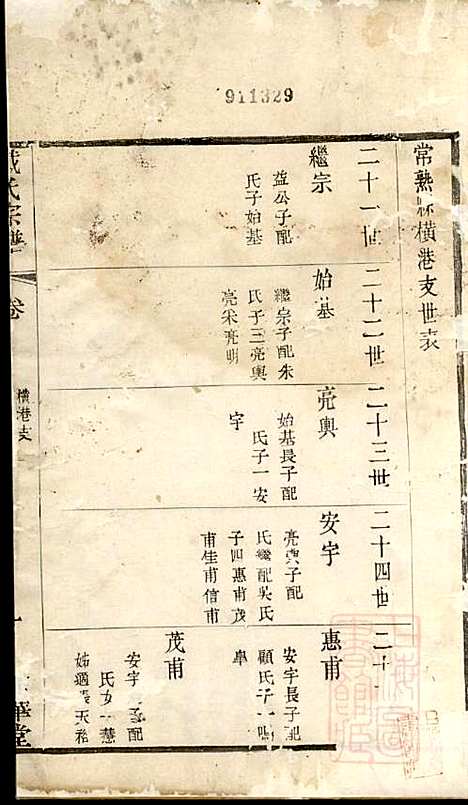 911329
常熟縣橫港支世表
二十一世
繼宗
益公子配
氏子始基
二十二世
始基
繼宗子配朱
氏子三亮輿
亮采亮明
二十三世
亮輿
始基長子配
氏子一安
宇
二十四世
安宇
亮輿子配
氏繼配吳氏
子四惠甫茂
甫佳甫信甫
二十
惠甫
安宇長子配
顧氏子一鳴
皐
茂甫
安宇子配
氏女一慧
姊適張天裕
氏宗譜
卷
橫港支
一
華堂